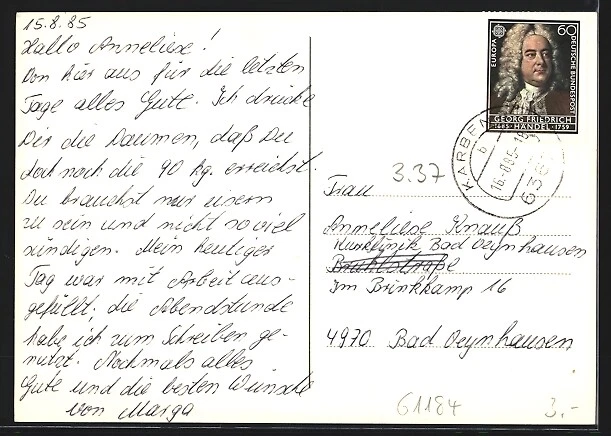 15.8.85
Hallo Anneliese!
Von hier aus für die letzten
Tage alles Gute. Ich drücke
Dir die Daumen, daß Du
doch noch die 90 kg. erreichst.
Du brauchst nur eisern
zu sein und nicht so viel
sündigen. Mein heutiger
Tag war mit Arbeit aus-
gefüllt, die Abendstunde
habe ich zum Schreiben ge-
nutzt. Nochmals alles
Gute und die besten Wünsche
von Marga
EUROPA
60
DEUTSCHE BUNDESPOST
GEORG FRIEDRICH
HÄNDEL
1685
1759
KARBEN
b
16.-8.85-16
636
3.37
Frau
Anneliese Knauß
Kurklinik Bad Oeynhausen
Brühlstraße
Im Brinkkamp 16
4970 Bad Oeynhausen
61184
3.-